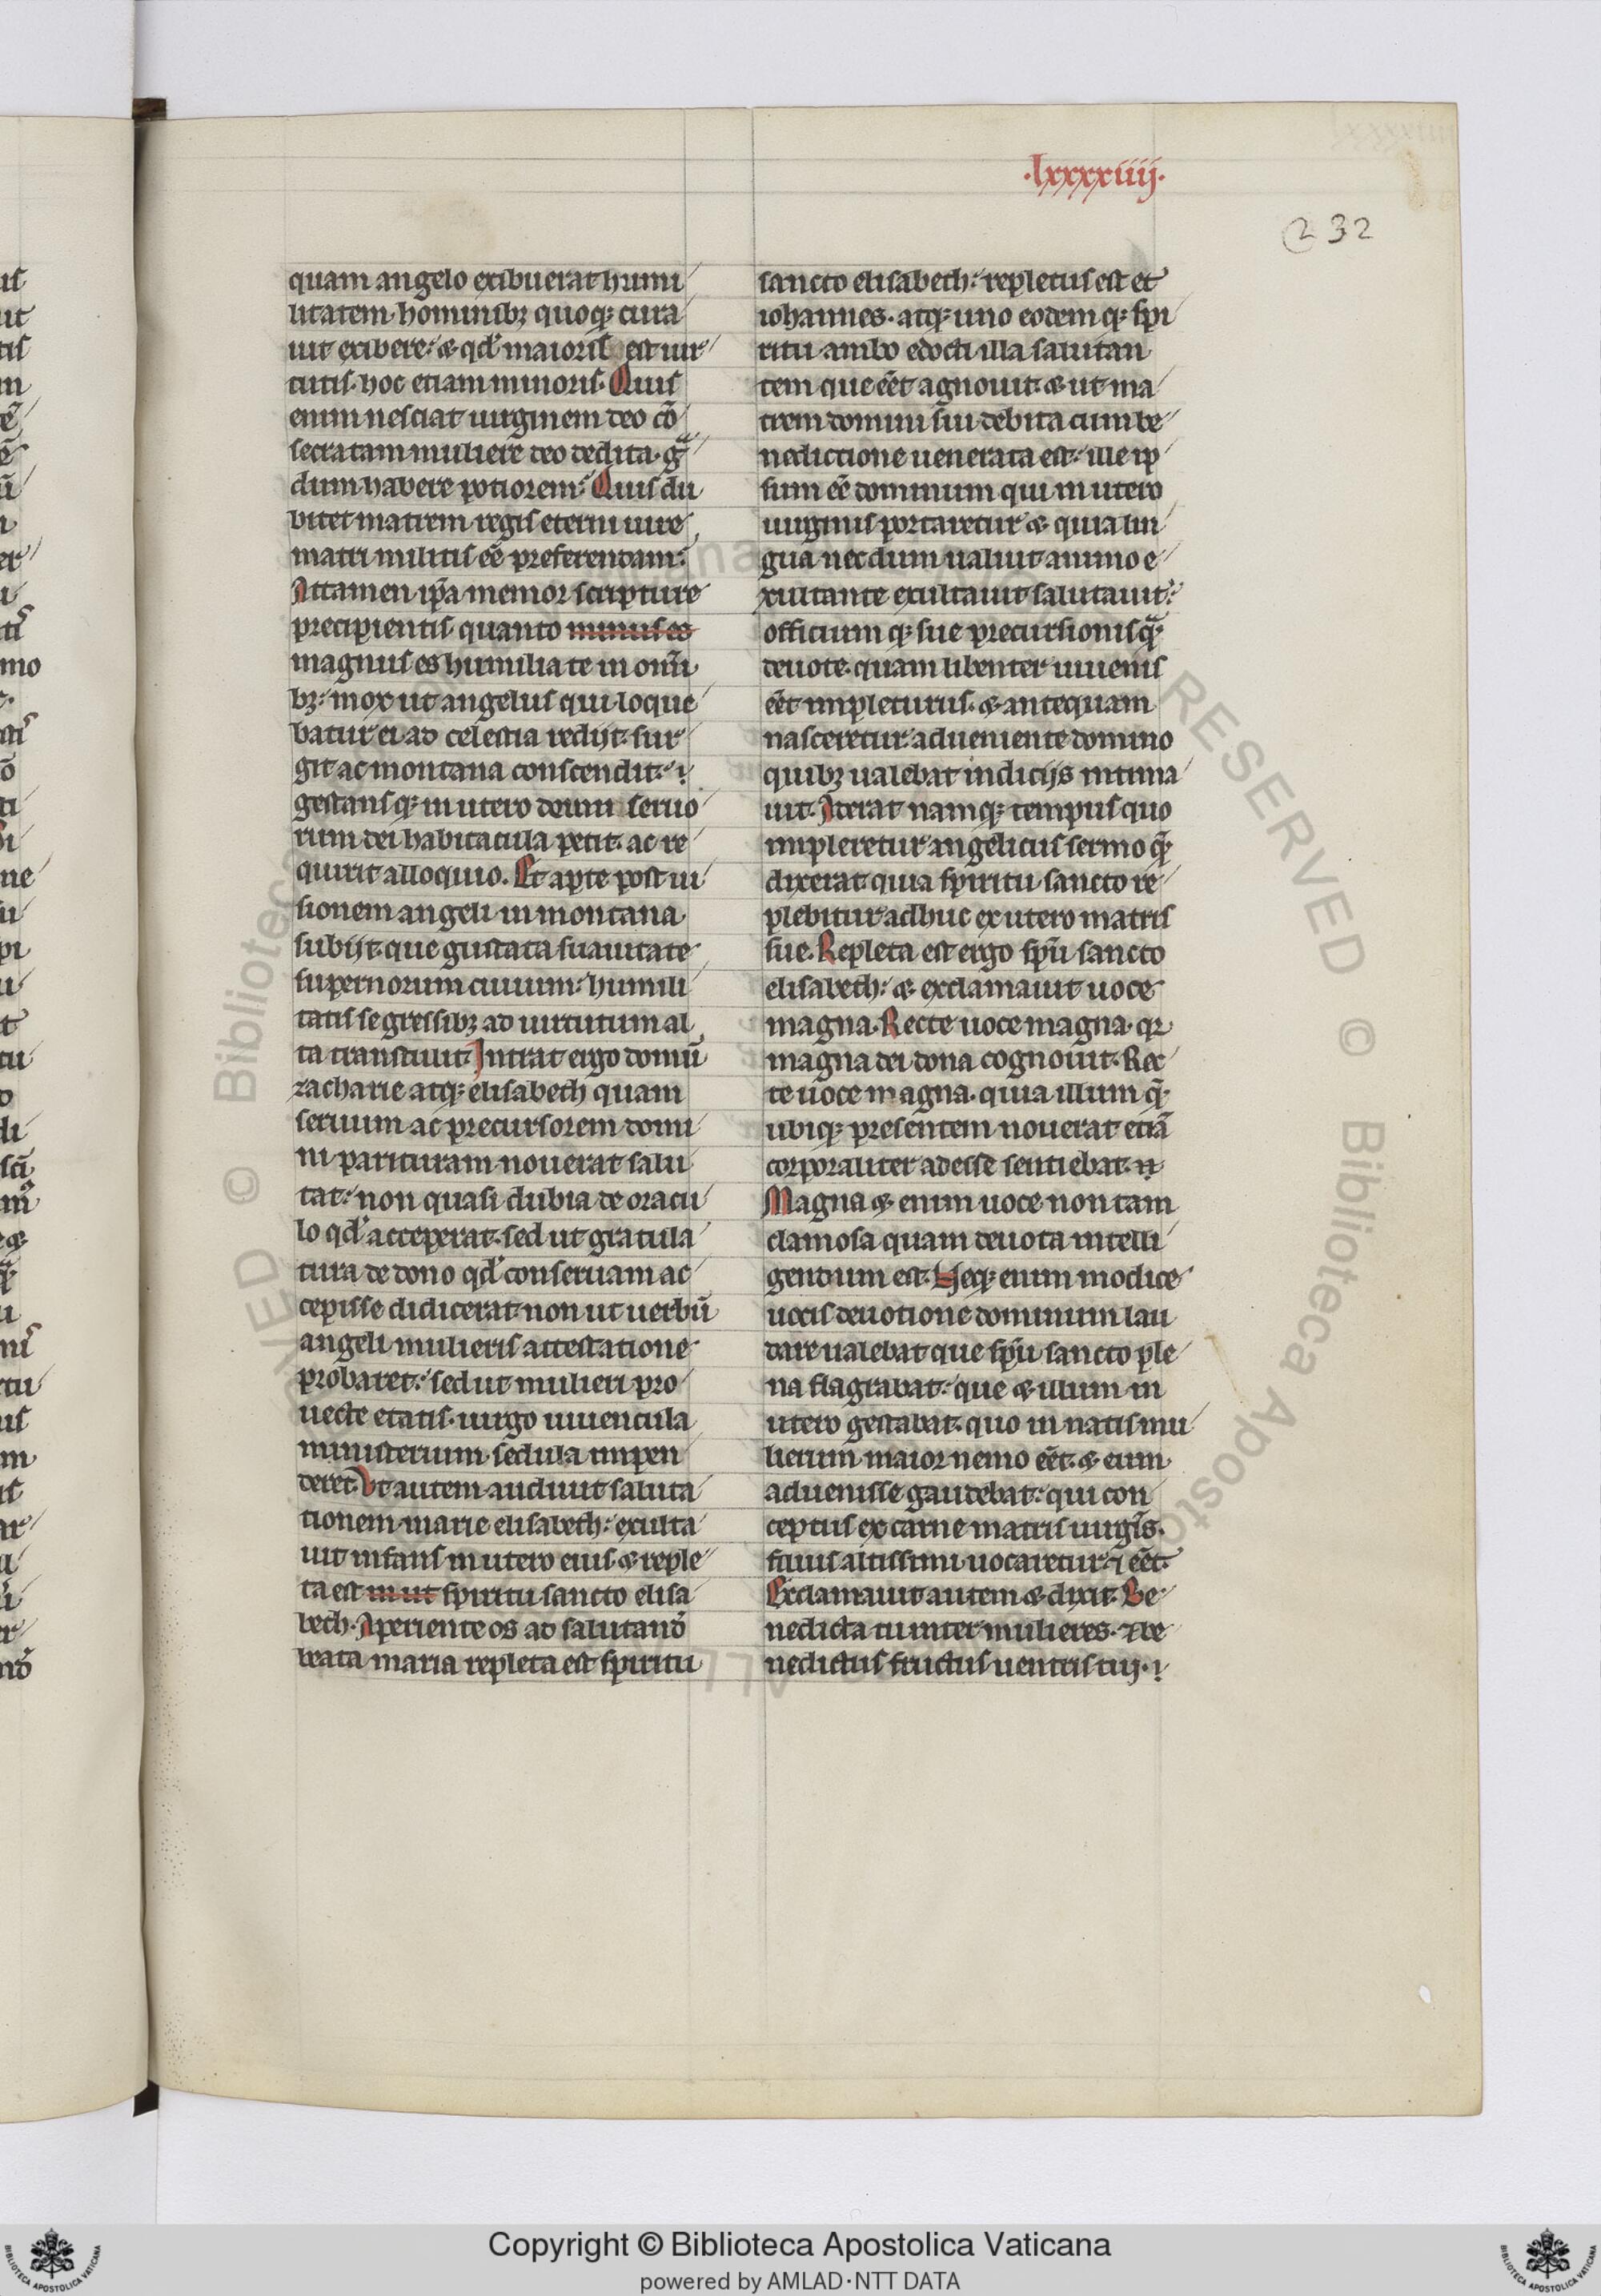 .lxxxxiiij.
232
quam angelo exibuerat humi
litatem hominibꝫ quoqꝫ cura
uit exibere: ⁊ qđ maioris est uir
tutis. hoc etiam minoris. Quis
enim nesciat uirginem deo cō
secratam muliere deo dedita. gͣ
dum habere potiorem: Quis du
bitet matrem regis eterni iure
matri militis eē preferendam:
Attamen ip̄a memor scripture
precipientis quanto minus es
magnus es humilia te in om̄i
bꝫ: mox ut angelus qui loque
batur ei ad celestia redijt. sur
git ac montana conscendit:
gestansqꝫ in utero deum seruo
rum dei habitacula petit. ac re
quirit alloquio. Et apte post ui
sionem angeli in montana
subijt. que gustata suauitate
supernorum ciuium: humili
tatis se gressibꝫ ad uirtutum al
ta transtulit. Intrat ergo domū
zacharie atqꝫ elisabeth quam
seruum ac precursorem domi
ni parituram nouerat salu
tat: non quasi dubia de oracu
lo qđ acceperat. sed ut gratula
tura de dono qđ conseruam ac
cepisse didicerat. non ut uerbū
angeli mulieris attestatione
probaret: sed ut mulieri pro
uecte etatis. uirgo iuuencula
ministerium sedula impen
deret. Vt autem audiuit saluta
tionem marie elisabeth: exulta
uit infans in utero eius ⁊ reple
ta est in ut spiritu sancto elisa
beth. Aperiente os ad salutand̄
beata maria repleta est spiritu
sancto elisabeth: repletus est et
iohannes. atqꝫ uno eodemqꝫ spi
ritu ambo edocti illa salutan
tem que eēt agnouit. ⁊ ut ma
trem domini sui debita cum be
nedictione uenerata est: ille ip
sum eē dominum qui in utero
uirginis portaretur ⁊ quia lin
gua necdum ualuit animo e
xultante exultauit salutauit:
officium qꝫ sue precursionis qͣ
deuote. quam libenter iuuenis
eēt impleturus. ⁊ antequam
nasceretur. adueniente domino
quibꝫ ualebat indicijs intima
uit. Iterat namqꝫ tempus quo
impleretur angelicus sermo q̄
dixerat. quia spiritu sancto re
plebitur adhuc ex utero matris
sue. Repleta est ergo spū sancto
elisabeth: ⁊ exclamauit uoce
magna. Recte uoce magna. qꝛ
magna dei dona cognouit. Rec
te uoce magna. quia illum q̄
ubiqꝫ presentem nouerat etiā
corporaliter adesse sentiebat.
Magna ⁊ enim uoce non tam
clamosa quam deuota intelli
gendum est. Neqꝫ enim modice
uocis deuotione dominum lau
dare ualebat que spū sancto ple
na flagrabat: que ⁊ illum in
utero gestabat. quo in natis mu
lierum maior nemo eēt. ⁊ eum
aduenisse gaudebat: qui con
ceptus ex carne matris uirgīs.
filius altissimi uocaretur ⁊ eēt.
Exclamauit autem ⁊ dixit. Be
nedicta tu inter mulieres. ⁊ be
nedictus fructus uentris tui.
Copyright © Biblioteca Apostolica Vaticana
powered by AMLAD·NTT DATA